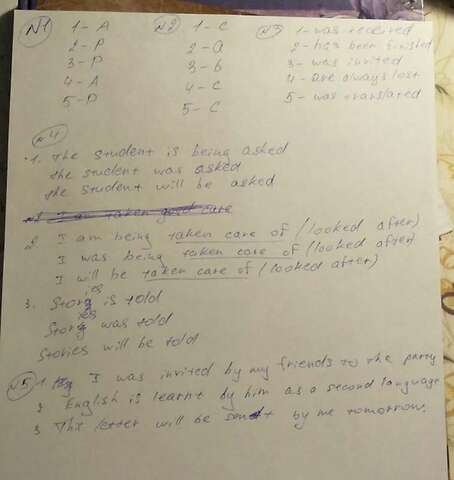 N1 1-A N2 1-C N3 1-was received
2-P 2-a 2-has been finished
3-P 3-b 3-was invited
4-A 4-C 4-are always lost
5-P 5-C 5-was translated
N4
1. The student is being asked
the student was asked
the student will be asked
I am taken good care
2. I am being taken care of (looked after)
I was being taken care of (looked after)
I will be taken care of (looked after)
3. Stories is told
Stories was told
Stories will be told
N5 1. I was invited by my friends to the party
2 English is learnt by him as a second language
3 The letter will be sent by me tomorrow.